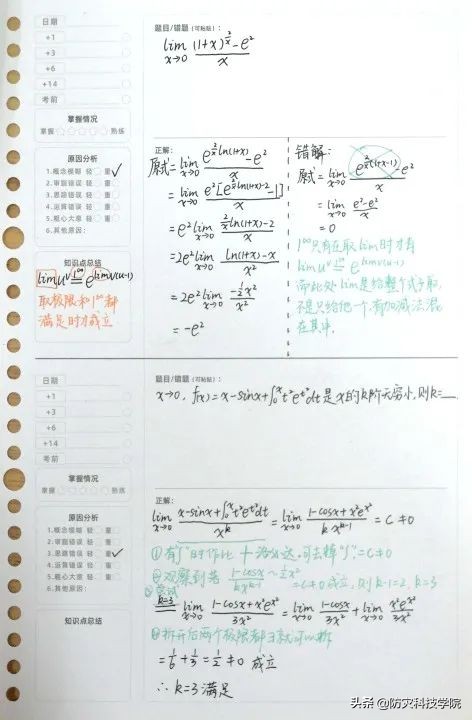 日期
+1
+3
+6
+14
考前
掌握情况
掌握 熟练
原因分析
1.概念模糊 轻 重 ✓
2.审题错误 轻 重
3.思路错误 轻 重
4.运算错误 轻 重
5.粗心大意 轻 重
6.其他原因:
知识点总结
lim u^v 1^∞= e^{lim v(u-1)}
取极限和1^∞都
满足时才成立
题目/错题(可粘贴):
lim_{x→0} ((1+x)^{2/x} - e²)/x
正解:
原式 = lim_{x→0} (e^{(2/x)ln(1+x)} - e²)/x
= lim_{x→0} e²[e^{(2/x)ln(1+x)-2} - 1]/x
= e² lim_{x→0} ((2/x)ln(1+x)-2)/x
= 2e² lim_{x→0} (ln(1+x)-x)/x²
= 2e² lim_{x→0} (-½x²)/x²
= -e²
错解:
原式 = lim_{x→0} (e^{(2/x)(1+x-1)} - e²)/x
= lim_{x→0} (e²-e²)/x
= 0
1^∞只有在取lim时才有
lim u^v 1^∞= e^{lim v(u-1)}
而此处lim是给整个式子取,
不是只给他一个,有加减法混
在其中.
日期
+1
+3
+6
+14
考前
掌握情况
掌握 熟练
原因分析
1.概念模糊 轻 重
2.审题错误 轻 重
3.思路错误 轻 重 ✓
4.运算错误 轻 重
5.粗心大意 轻 重
6.其他原因:
知识点总结
题目/错题(可粘贴):
x→0, f(x)=x-sinx+∫₀ˣt²e^{t²}dt是x的k阶无穷小,则k=__
正解:
lim_{x→0} (x-sinx+∫₀ˣt²e^{t²}dt)/x^k = lim_{x→0} (1-cosx+x²e^{x²})/(k x^{k-1}) = C≠0
①有"∫"时作比 洛必达,可去掉"∫" = C≠0
②观察到若 (1-cosx)/(k x^{k-1}) ~½x² = C≠0 成立, 则k-1=2, k=3
③尝试
k=3 lim_{x→0} (1-cosx+x²e^{x²})/3x² = lim_{x→0} (1-cosx)/3x² + lim_{x→0} x²e^{x²}/3x²
④拆开后两个极限都∃就可以拆
= 1/6 + 1/3 = 1/2 ≠ 0 成立
∴ k=3 满足
头条 @防灾科技学院